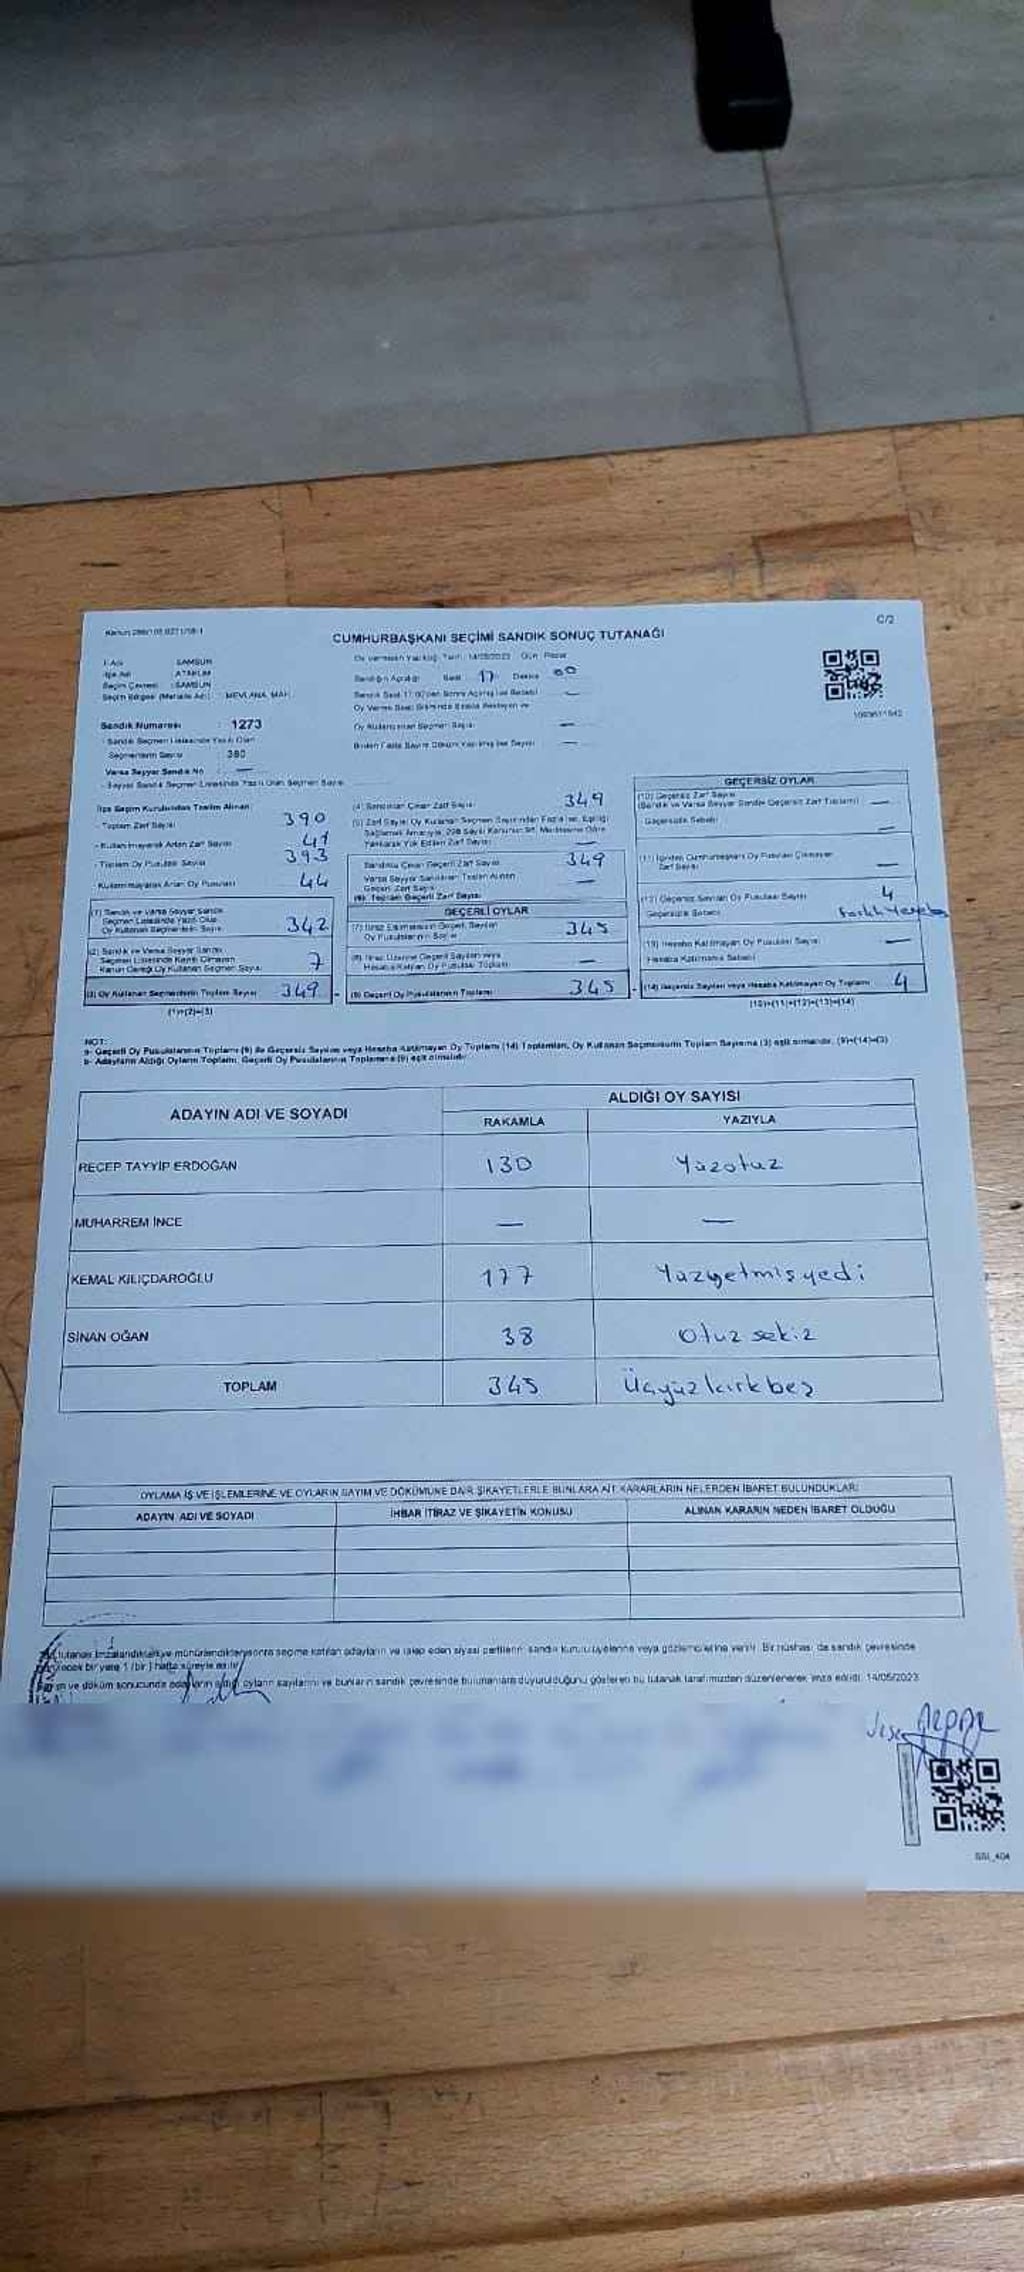 C/2
CUMHURBAŞKANI SEÇİMİ SANDIK SONUÇ TUTANAĞI
İl Adı : SAMSUN
İlçe Adı : ATAKUM
Seçim Çevresi : SAMSUN
Seçim Bölgesi (Mahalle Adı) : MEVLANA MAH.
Sandık Numarası : 1273
- Sandık Seçmen Listesinde Yazılı Olan
Seçmenlerin Sayısı : 380
Varsa Seyyar Sandık No : —
- Seyyar Sandık Seçmen Listesinde Yazılı Olan Seçmen Sayısı
Oy Vermenin Yapıldığı Tarih: 14/05/2023 Gün: Pazar
Sandığın Açıldığı Saat 17 Dakika 00
Oy Kullanan Seçmen Sayısı —
Birden Fazla Sayım Döküm Yapılmış İse Sayısı —
İlçe Seçim Kurulundan Teslim Alınan:
- Toplam Zarf Sayısı 390
- Kullanılmayarak Artan Zarf Sayısı 41
- Toplam Oy Pusulası Sayısı 393
- Kullanılmayarak Artan Oy Pusulası 44
(1) Sandık ve Varsa Seyyar Sandık
Seçmen Listesinde Yazılı Olup
Oy Kullanan Seçmenlerin Sayısı 342
(2) Sandık ve Varsa Seyyar Sandık
Seçmen Listesinde Kayıtlı Olmayan
Kanun Gereği Oy Kullanan Seçmen Sayısı 7
(3) Oy Kullanan Seçmenlerin Toplam Sayısı 349
(1)+(2)=(3)
(4) Sandıktan Çıkan Zarf Sayısı 349
(5) Zarf Sayısı Oy Kullanan Seçmen Sayısından Fazla İse, Eşitliği
Sağlamak Amacıyla, 298 Sayılı Kanunun 98. Maddesine Göre
Yakılarak Yok Edilen Zarf Sayısı —
Sandıktan Çıkan Geçerli Zarf Sayısı 349
Varsa Seyyar Sandıktan Teslim Alınan
Geçerli Zarf Sayısı —
(6) Toplam Geçerli Zarf Sayısı
GEÇERLİ OYLAR
(7) İtiraz Edilmeksizin Geçerli Sayılan
Oy Pusulalarının Sayısı 345
(8) İtiraz Üzerine Geçerli Sayılan veya
Hesaba Katılan Oy Pusulası Toplamı —
(9) Geçerli Oy Pusulalarının Toplamı 345
GEÇERSİZ OYLAR
(10) Geçersiz Zarf Sayısı
(Sandık ve Varsa Seyyar Sandık Geçersiz Zarf Toplamı) —
Geçersizlik Sebebi —
(11) İçinden Cumhurbaşkanı Oy Pusulası Çıkmayan
Zarf Sayısı —
(12) Geçersiz Sayılan Oy Pusulası Sayısı 4
Geçersizlik Sebebi
(13) Hesaba Katılmayan Oy Pusulası Sayısı —
Hesaba Katılmama Sebebi
(14) Geçersiz Sayılan veya Hesaba Katılmayan Oy Toplamı 4
(10)+(11)+(12)+(13)=(14)
NOT:
a- Geçerli Oy Pusulalarının Toplamı (9) ile Geçersiz Sayılan veya Hesaba Katılmayan Oy Toplamı (14) Toplamları, Oy Kullanan Seçmenlerin Toplam Sayısına (3) eşit olmalıdır. (9)+(14)=(3)
b- Adayların Aldığı Oyların Toplamı, Geçerli Oy Pusulalarının Toplamına (9) eşit olmalıdır.
ADAYIN ADI VE SOYADI ALDIĞI OY SAYISI
RAKAMLA YAZIYLA
RECEP TAYYİP ERDOĞAN 130 Yüzotuz
MUHARREM İNCE — —
KEMAL KILIÇDAROĞLU 177 Yüzyetmişyedi
SİNAN OĞAN 38 Otuz sekiz
TOPLAM 345 Üçyüzkırkbeş
OYLAMA İŞ VE İŞLEMLERİNE VE OYLARIN SAYIM VE DÖKÜMÜNE DAİR ŞİKAYETLERLE BUNLARA AİT KARARLARIN NELERDEN İBARET BULUNDUKLARI
ADAYIN ADI VE SOYADI İHBAR İTİRAZ VE ŞİKAYETİN KONUSU ALINAN KARARIN NEDEN İBARET OLDUĞU
sonra seçime katılan adayların ve talep eden siyasi partilerin sandık kurulu üyelerine veya gözlemcilerine verilir. Bir nüshası da sandık çevresinde
bir yere 1 (bir) hafta süreyle asılır.
ve döküm sonucunda adayların aldığı oyların sayılarını ve bunların sandık çevresinde bulunanlara duyurulduğunu gösteren bu tutanak tarafımızdan düzenlenerek imza edildi. 14/05/2023